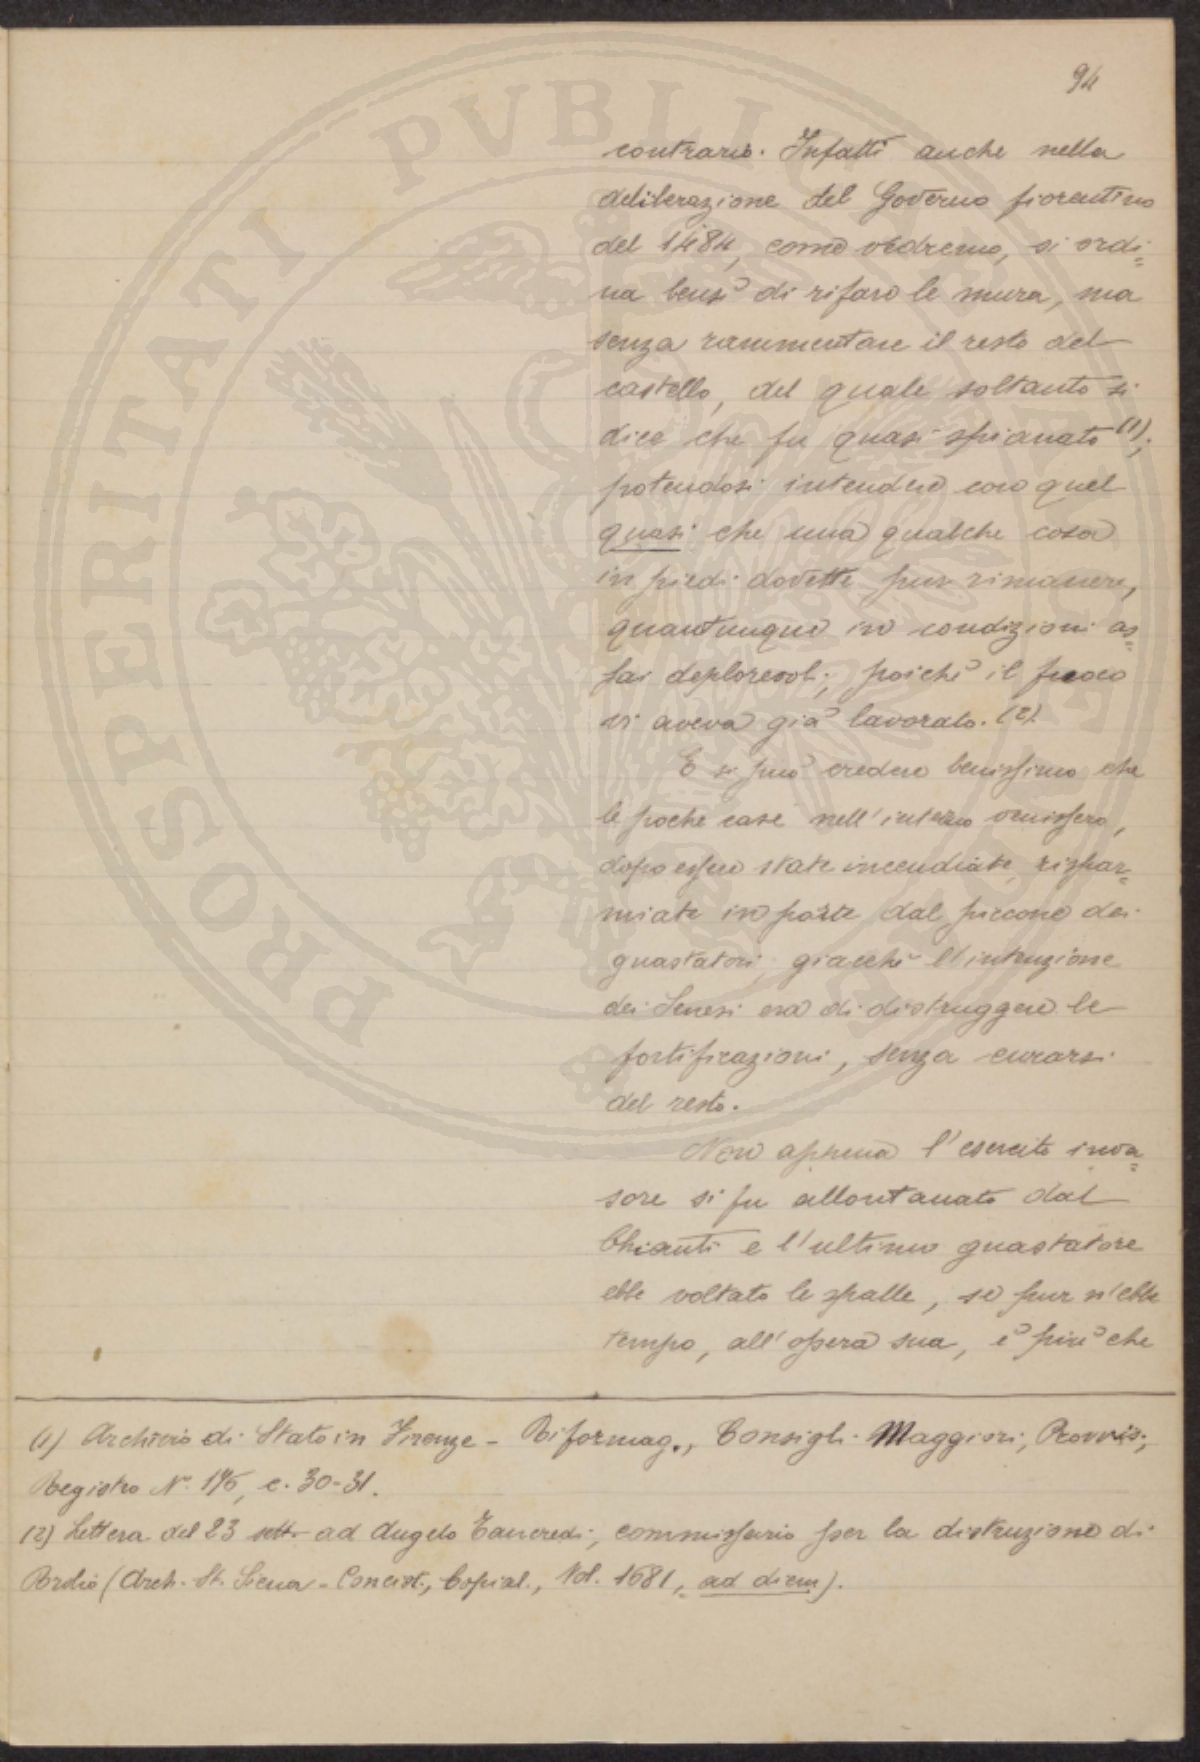 94
contrario. Infatti anche nella
deliberazione del Governo fiorentino
del 1484, come vedremo, si ordi=
na bensì di rifare le mura, ma
senza rammentare il resto del
castello, del quale soltanto si
dice che fu quasi spianato (1);
potendosi intendere con quel
quasi che una qualche cosa
in piedi dovette pur rimanere,
quantunque in condizioni as=
sai deplorevoli; poichè il fuoco
vi aveva già lavorato. (2).
E si può credere benissimo che
le poche case nell'interno venissero,
dopo essere state incendiate, rispar=
miate in parte dal piccone dei
guastatori, giacchè l'intenzione
dei Senesi era di distruggere le
fortificazioni, senza curarsi
del resto.
Non appena l'esercito inva=
sore si fu allontanato dal
Chianti e l'ultimo guastatore
ebbe voltato le spalle, se pur n'ebbe
tempo, all'opera sua, è più che
(1) Archivio di Stato in Firenze - Riformag., Consigli Maggiori, Provvis.,
Registro N.° 176, c. 30-31.
(2) Lettera del 23 sett. ad Angelo Tancredi, commissario per la distruzione di
Brolio (Arch. St. Siena - Concist., Copial., Vol. 1681, ad diem).
PROSPERITATI PVBLICAE AVGENDAE